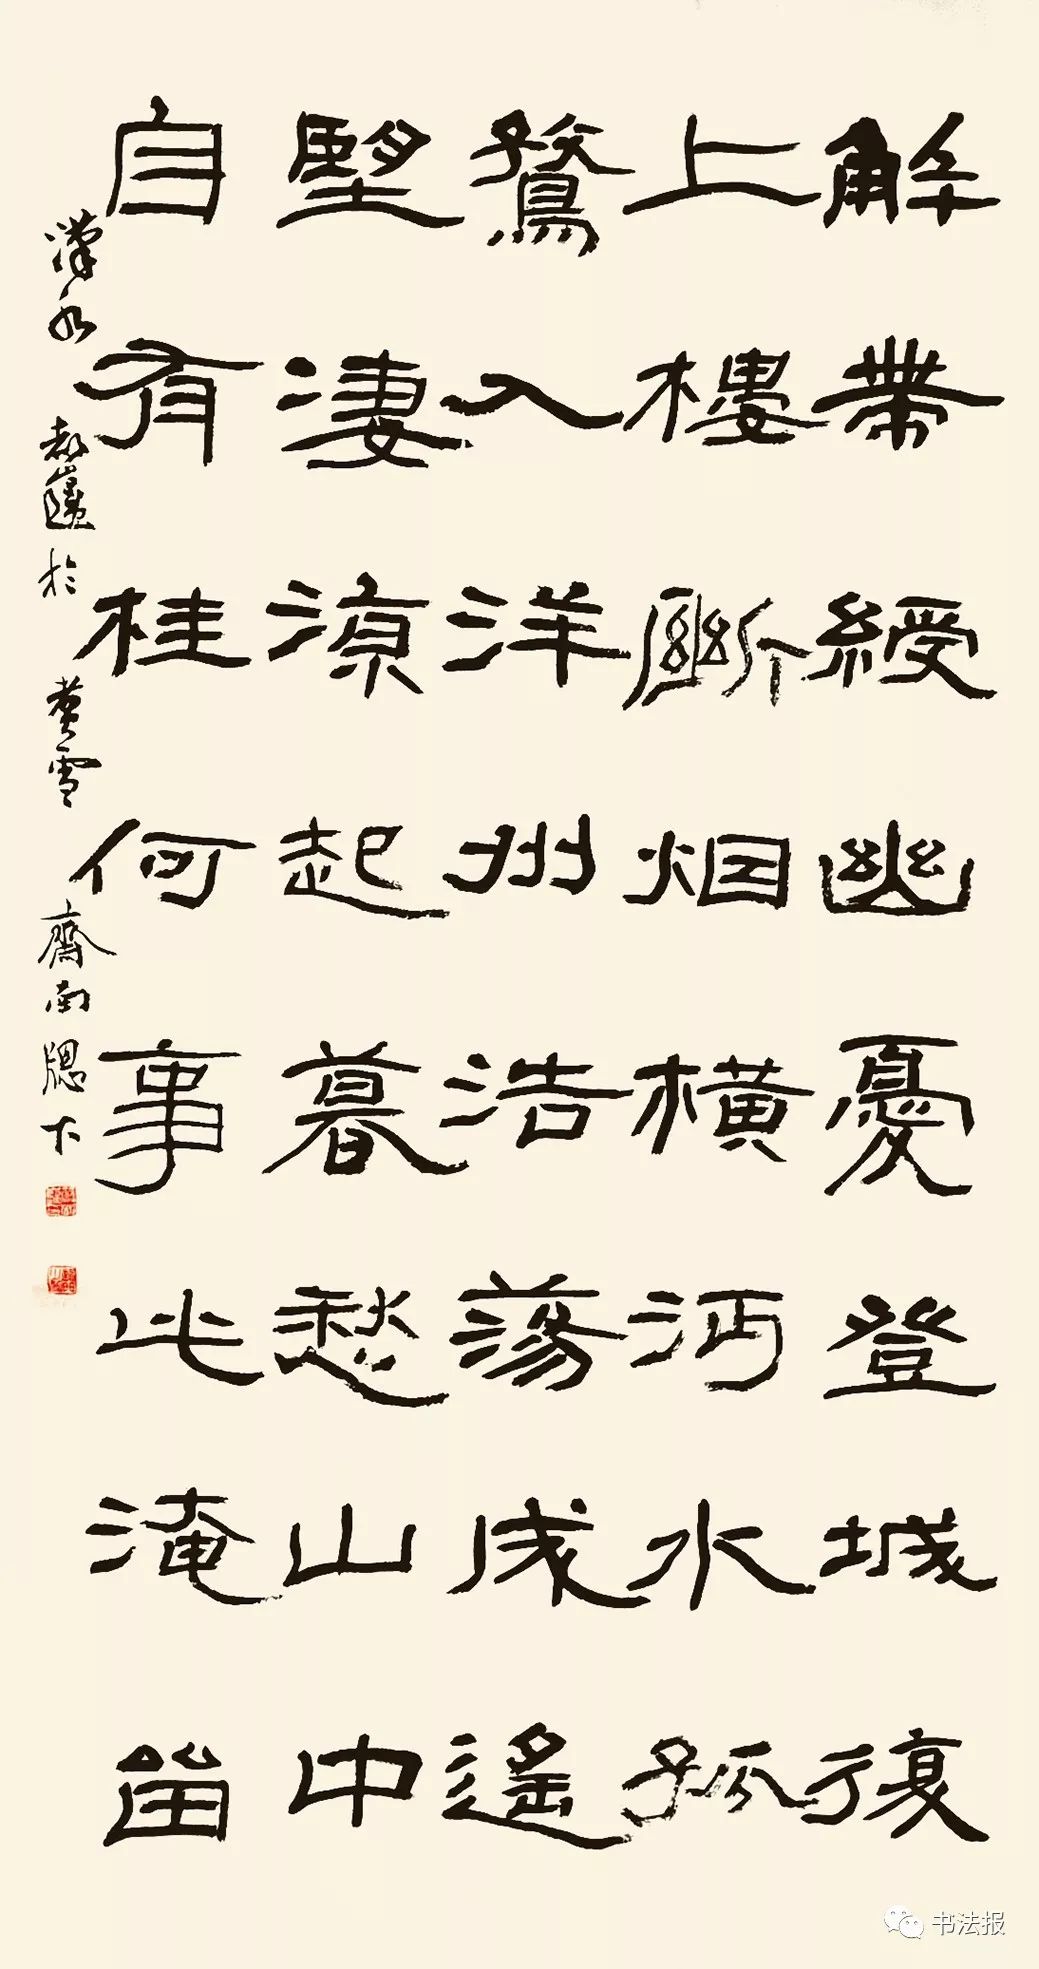 解帶綬幽憂登城復
上樓斷烟橫沔水孤
鶩入洋州浩蕩成遙
朢淒涼起暮愁山中
自有桂何事此淹留
漢水 於 雪齋南牕下
书法报